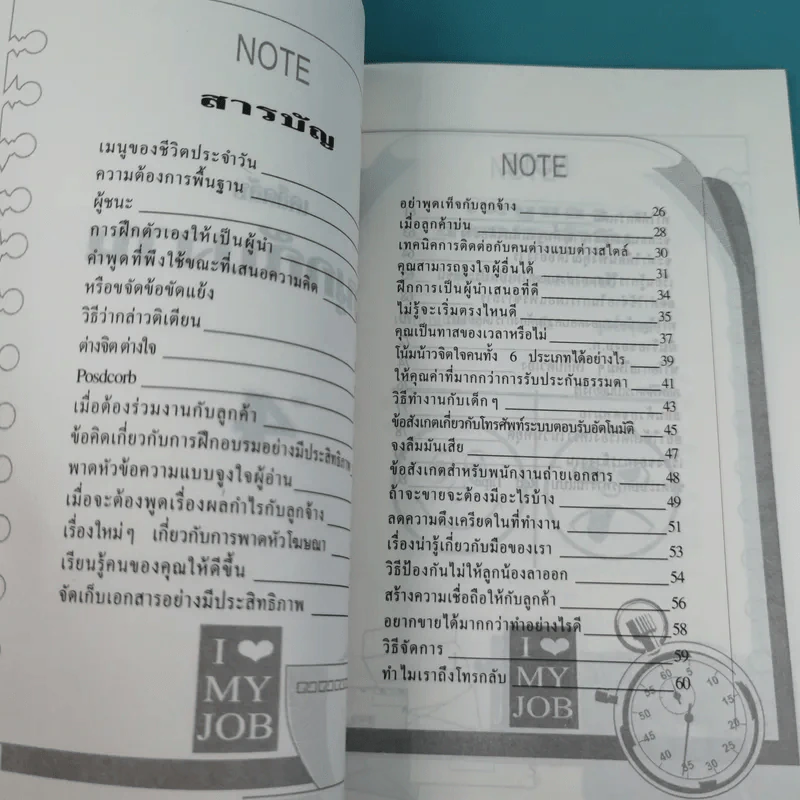 NOTE
สารบัญ
เมนูของชีวิตประจำวัน
ความต้องการพื้นฐาน
ผู้ชนะ
การฝึกตัวเองให้เป็นผู้นำ
คำพูดที่พึงใช้ขณะที่เสนอความคิด
หรือขจัดข้อขัดแย้ง
วิธีว่ากล่าวติเตียน
ต่างจิตต่างใจ
Posdcorb
เมื่อต้องร่วมงานกับลูกค้า
ข้อคิดเกี่ยวกับการฝึกอบรมอย่างมีประสิทธิภาพ
พาดหัวข้อความแบบจูงใจผู้อ่าน
เมื่อจะต้องพูดเรื่องผลกำไรกับลูกจ้าง
เรื่องใหม่ๆ เกี่ยวกับการพาดหัวโฆษณา
เรียนรู้คนของคุณให้ดีขึ้น
จัดเก็บเอกสารอย่างมีประสิทธิภาพ
I
MY
JOB
NOTE
อย่าพูดเท็จกับลูกจ้าง 26
เมื่อลูกค้าบ่น 28
เทคนิคการติดต่อกับคนต่างแบบต่างสไตล์ 30
คุณสามารถจูงใจผู้อื่นได้ 31
ฝึกการเป็นผู้นำเสนอที่ดี 34
ไม่รู้จะเริ่มตรงไหนดี 35
คุณเป็นทาสของเวลาหรือไม่ 37
โน้มน้าวจิตใจคนทั้ง 6 ประเภทได้อย่างไร 39
ให้คุณค่าที่มากกว่าการรับประกันธรรมดา 41
วิธีทำงานกับเด็กๆ 43
ข้อสังเกตเกี่ยวกับโทรศัพท์ระบบตอบรับอัตโนมัติ 45
จงลืมมันเสีย 47
ข้อสังเกตสำหรับพนักงานถ่ายเอกสาร 48
ถ้าจะขายจะต้องมีอะไรบ้าง 49
ลดความตึงเครียดในที่ทำงาน 51
เรื่องน่ารู้เกี่ยวกับมือของเรา 53
วิธีป้องกันไม่ให้ลูกน้องลาออก 54
สร้างความเชื่อถือให้กับลูกค้า 56
อยากขายได้มากกว่าทำอย่างไรดี 58
วิธีจัดการ 59
ทำไมเราถึงโทรกลับ 60
I
MY
JOB
60 5 10 15 20 25 30 35 40 45 50 55